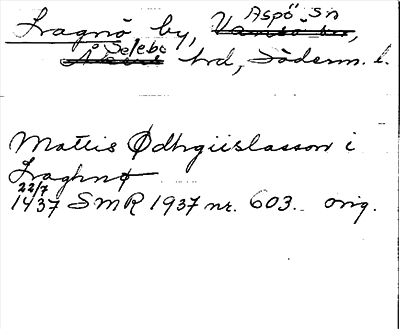 Aspö sn
Lagnö by, Vansö sn,
Selebo
Åkers hrd, Söderm. l.
Mattis Ødhgiislasson i
Laghnø
22/7
1437 SMR 1937 nr. 603. orig.